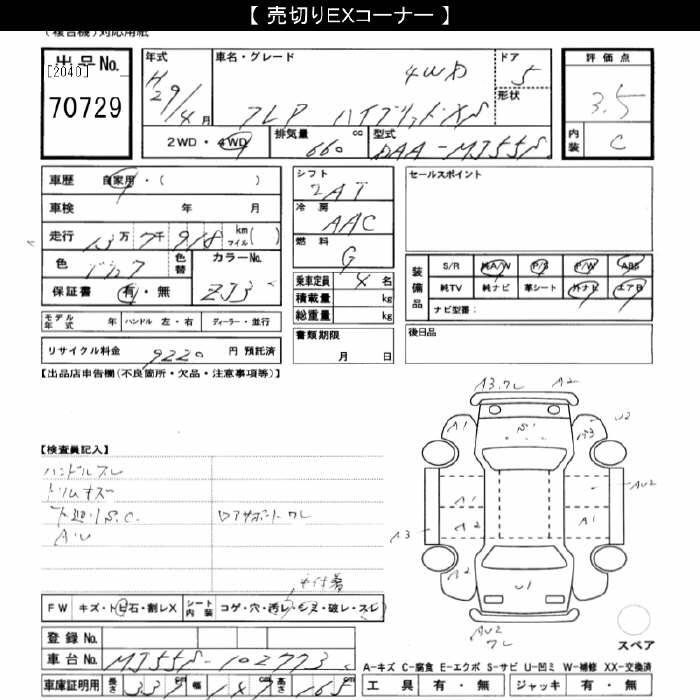 【 売切りEXコーナー 】
(複合機)対応用紙
出品No.
[2040]
70729
年式
H29/4月
車名・グレード
4WD
フレア ハイブリッドXS
ドア
5
形状
評価点
3.5
内装
C
2WD・4WD
排気量
660
cc
型式
DAA-MJ55S
車歴 自家用・( )
車検 年 月
走行 13万7千918 km マイル( )
色
色替
カラーNo.
ZJ3
保証書 有・無
モデル年式 年 ハンドル 左・右 ディーラー・並行
リサイクル料金 9220 円 預託済
シフト
IAT
冷房
AAC
燃料
G
乗車定員 4 名
積載量 kg
総重量 kg
書類期限
月 日
セールスポイント
装備品
S/R 純A/W P/S P/W ABS
純TV 純ナビ 革シート 外ナビ エアB
ナビ型番:
後日品
【出品店申告欄(不良箇所・欠品・注意事項等)】
【検査員記入】
ハンドルスレ
トリムキズ
下廻りS.C.
A・U
ロアサポートワレ
FW キズ・トビ石・割レX
シート内装 コゲ・穴・汚レ・シミ・破レ・スレ
登録No.
車台No. MJ55S-102773
車庫証明用 長さ 339 cm 幅 147 cm 高さ 165 cm
A3.ワレ
A2
A1
S1
U2
A3
AU2
A1
A2
A1
A3
A2
U1
AU2
ワレ
スペア
A-キズ C-腐食 E-エクボ S-サビ U-凹ミ W-補修 XX-交換済
工具 有・無 ジャッキ 有・無